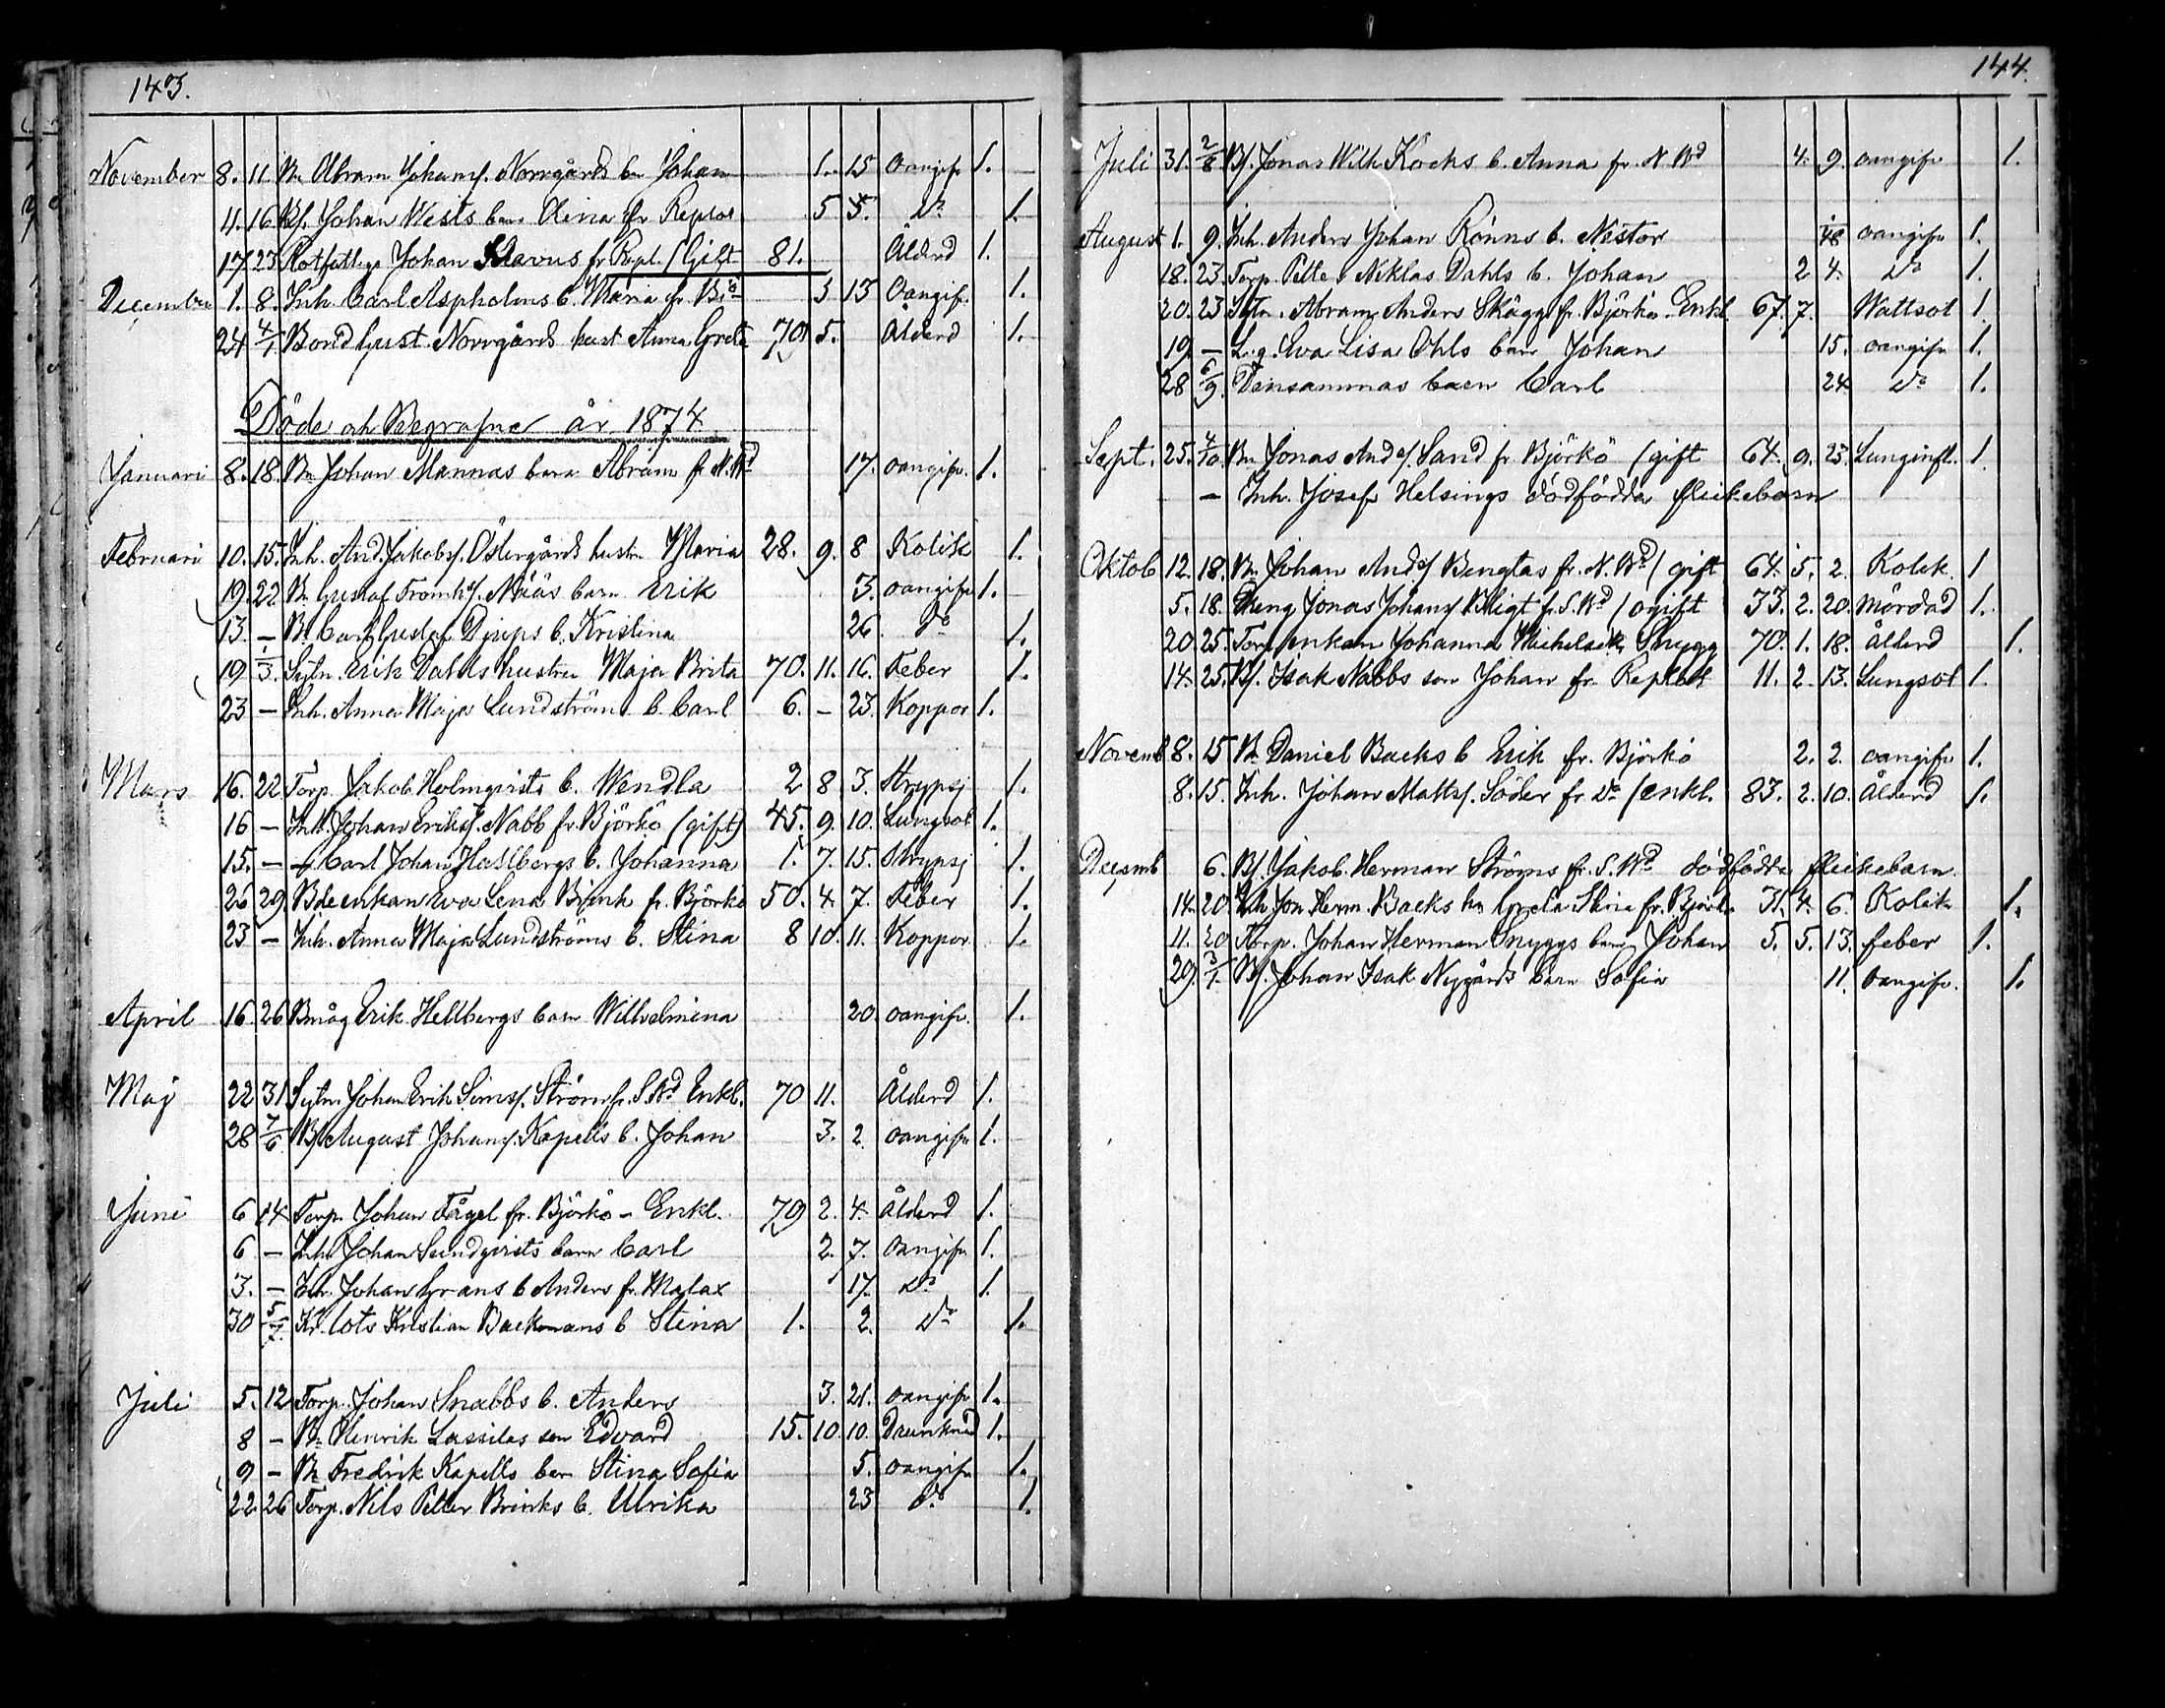 143.
November 8. 11. Bn Abram Johans. Norrgårds bn Johan 1. 15 oangifn 1.
4. 16. Bs. Johan Wests barn Olina fr Replot 5 5. do 1.
17 23 Rotfattige Johan Slavus fr Repl. / Gift 81. Ålderd 1.
December 1. 8. Inh. Carl Aspholms b. Maria fr. Bjö 3 13 Oangifn. 1.
24 4/1 Bond Gust. Norrgårds hust Anna Greta 70 5. Ålderd 1.
Döde och Begrafne år 1874
Januari 8. 18. Bn Johan Mannas barn Abram fr N.Wd 17. oangifn. 1.
Februari 10. 15. Inh. And. Jakobs. Östergårds hustr Maria 28. 9. 8 Kolik 1.
19. 22 Bn Gustaf Tromh. Nääs barn Erik 3. oangifn 1.
13. — Bn Carl Gustaf Djups b. Kristina 26. do 1.
19 1/3. Sytn. Erik Dahls hustru Maja Brita 70. 11. 16. Feber 1.
23 — Inh. Anna Maja Lundström b. Carl 6. — 23. Koppor 1.
Mars 16. 22 Torp. Jakob Holmqvists b. Wendla 2 8 3. Strypsj 1.
16 — Inh. Johan Eriks. Nabb fr. Björkö (gift) 45. 9. 10. Lungsot 1.
15. — Carl Johan Hallbergs b. Johanna 1. 7. 15. Strypsj 1.
26 29. Bdeenkan Eva Lena Brink fr. Björkö 50. 4. 7. Feber 1.
23 — Inh. Anna Maja Lundströms b. Stina 8 10. 11. Koppor 1.
April 16. 26 Bmåg Erik Hellbergs barn Wilhelmina 20. oangifn. 1.
Maj 22 31 Sytn. Johan Erik Sims. Ström fr. S.Wd Enkl. 70 11. Ålderd 1.
28 7/6 Bs August Johans. Kapells b. Johan 3. 2. oangifn 1.
Juni 6 14 Torp. Johan Fågel fr. Björkö - Enkl. 79 2. 4. Ålderd 1.
6 — Inh. Johan Sundqvists barn Carl 2. 7. oangifn 1.
3. — Inh. Johan Grans b Anders fr. Malax 17. do 1.
30 5/7. Kr. lots Kristian Backmans b Stina 1. 2. do 1.
Juli 5. 12 Torp. Johan Snabbs b. Anders 3. 21. oangifn 1.
8 — Bn Henrik Lassilas son Edvard 15. 10. 10. Drunknad 1.
9 — Bn Fredrik Kapells barn Stina Sofia 5. oangifn 1.
22. 26 Torp. Nils Petter Brinks b. Ulrika 23 do 1.
144.
Juli 31. 2/8 Bs. Jonas Wilh. Kocks b. Anna fr. N Wd 4. 9. oangifn 1.
August 1. 9. Inh. Anders Johan Rönns b. Nestor oangifn 1.
18. 23. Torp. Petter Niklas Dahls b. Johan 2 4. do 1.
20. 23. Sytn. Abram Anders Skägg fr. Björkö. Enkl. 67. 7. Wattsot 1.
19 — L.g. Eva Lisa Ohls barn Johan 15. oangifn 1.
28 6/9. Densammas barn Carl 24 do 1.
Sept. 25. 4/10. Bn Jonas Anders. Sand fr Björkö (gift 64. 9. 23. Lunginfl. 1.
— Inh. Josef Helsings dödfödda flickebarn
Oktob 12. 18. Bn Johan Anders Bengtas fr. N.Wd / gift 64. 5. 2. Kolik 1
5. 18. Dreng Jonas Johans Bligt fr. S.Wd / ogift 33. 2. 20. Mördad 1.
20. 25. Torp enkan Johanna Michelsdr Snygg 70. 1. 18. Ålderd 1.
14. 25. Bs. Isak Nabbs son Johan fr. Replot 11. 2. 13. Lungsot 1.
Novemb 8. 15 Bn Daniel Backs b Erik fr. Björkö 2. 2. oangifn 1.
8. 15. Inh. Johan Matts. Söder fr. do / enkl. 83. 2. 10. Ålderd 1.
Decemb 6. Bs. Jakob Herman Ströms fr. S.Wd dödfödda flickebarn.
14. 20. Inh Jon Herm. Backs hu Greta Stina fr. Björkö 31. 4. 6. Kolik 1.
11. 20 Torp. Johan Herman Snyggs barn Johan 5. 5. 13. feber 1.
29. 3/1. Bs. Johan Isak Nygårds barn Sofia 11. oangifn. 1.